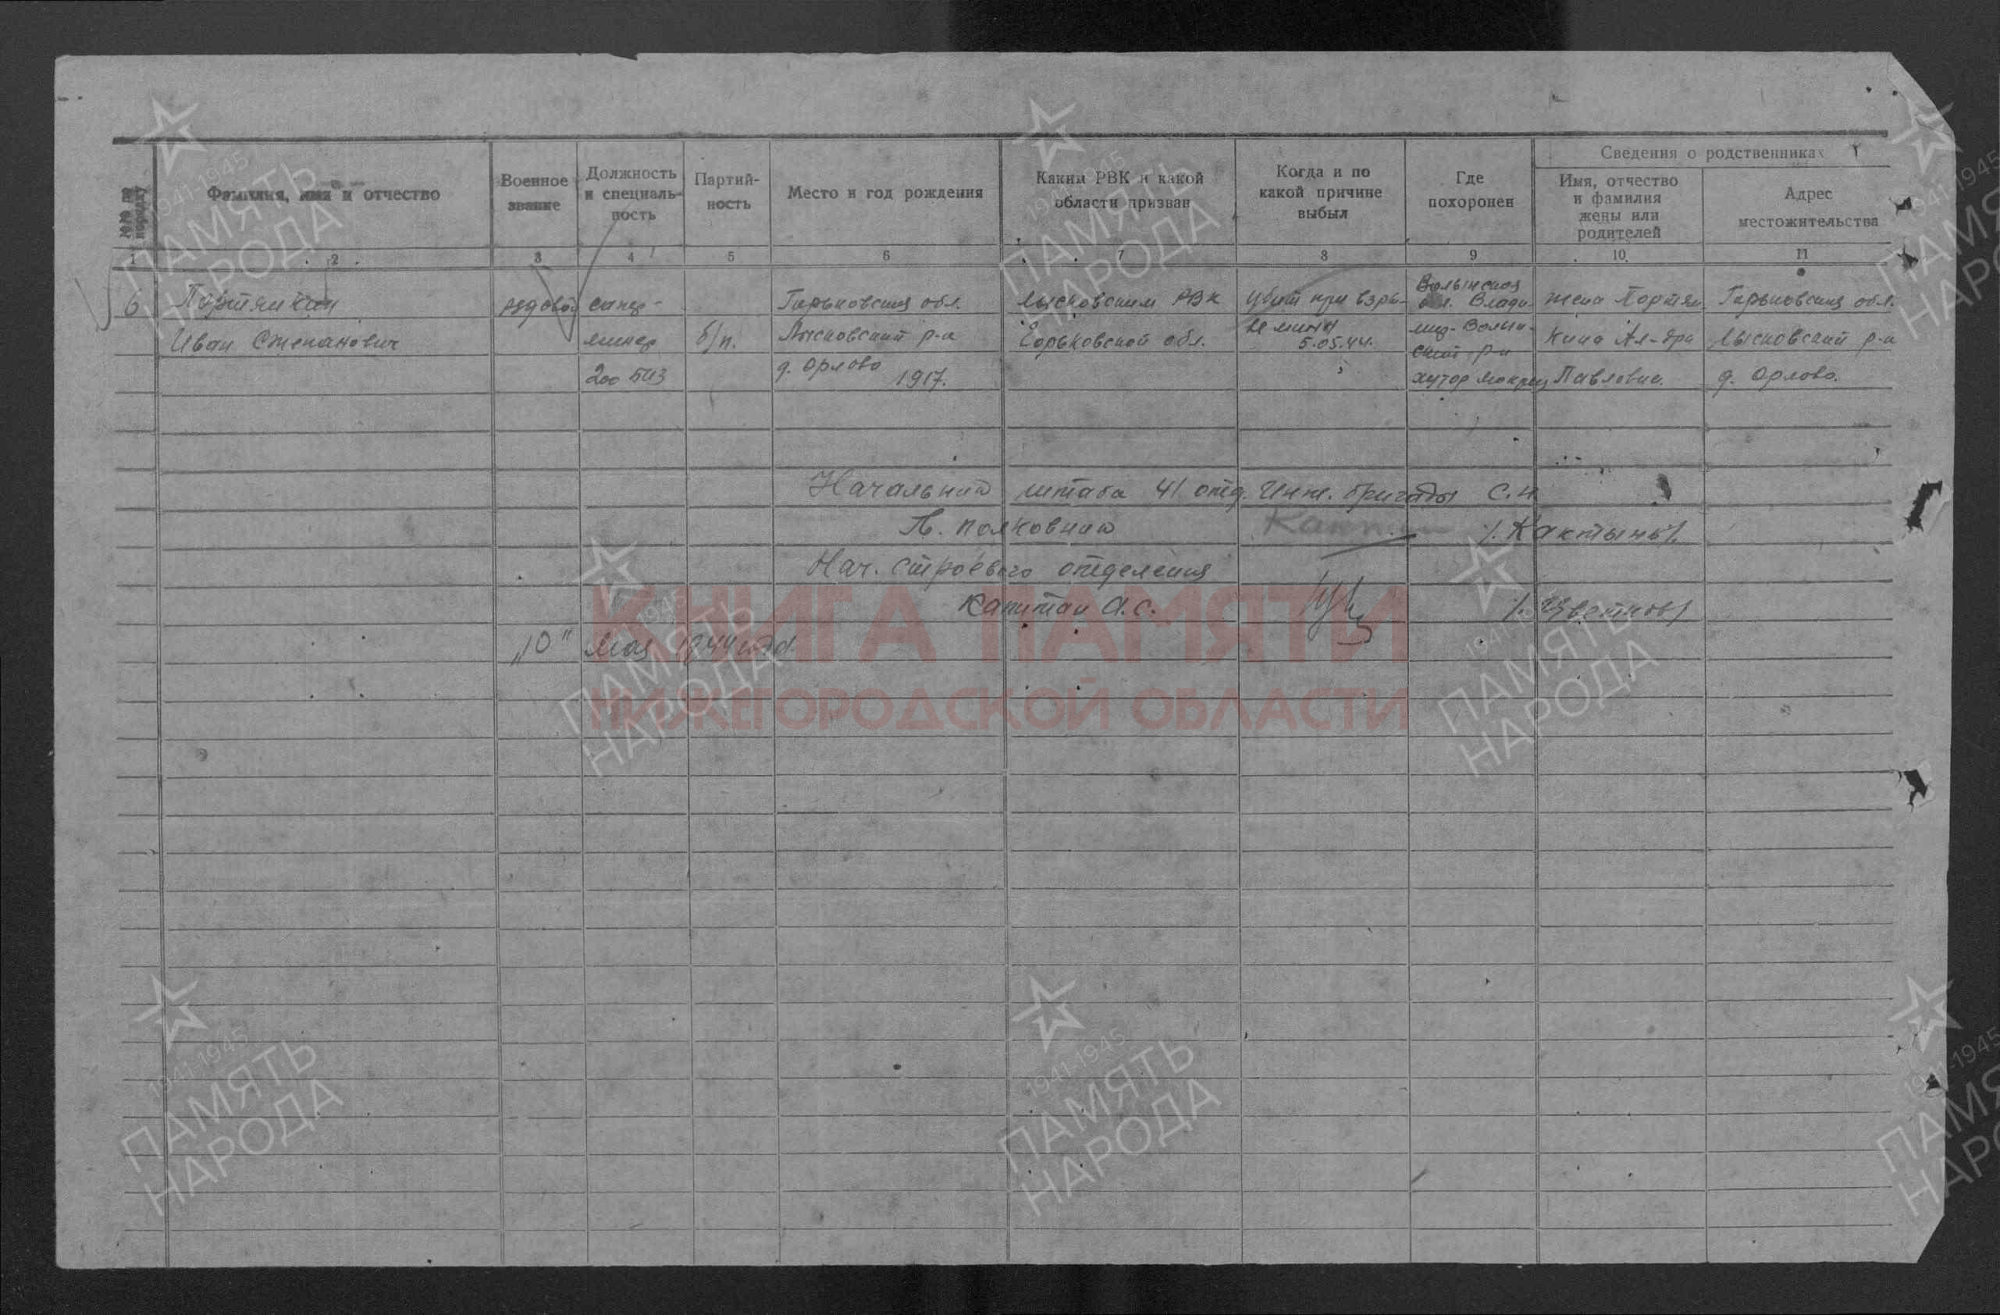 Сведения о родственниках
№№ по порядку
Фамилия, имя и отчество
Военное звание
Должность и специальность
Партийность
Место и год рождения
Каким РВК и какой области призван
Когда и по какой причине выбыл
Где похоронен
Имя, отчество и фамилия жены или родителей
Адрес местожительства
1 2 3 4 5 6 7 8 9 10 11
6 Портянкин рядовой сапер- Горьковская обл. Лысковским РВК Убит при взры- Волынская обл. Влади- жена Портян Горьковская обл.
Иван Степанович минер б/п. Лысковский р-н Горьковской обл. ве мины 5.05.44. мир-Волын- кина Ал-дра Лысковский р-н
200 БИЗ д. Орлово 1917. ский р-н хутор Павловна. д. Орлово.
Начальник штаба 41 отд. Инж. бригады С.Н.
П. полковник /.Кактынь/.
Нач. строевого отделения
капитан А.С. /.Цветков/
„10" мая 1944 года
КНИГА ПАМЯТИ
НИЖЕГОРОДСКОЙ ОБЛАСТИ
1941-1945
ПАМЯТЬ
НАРОДА